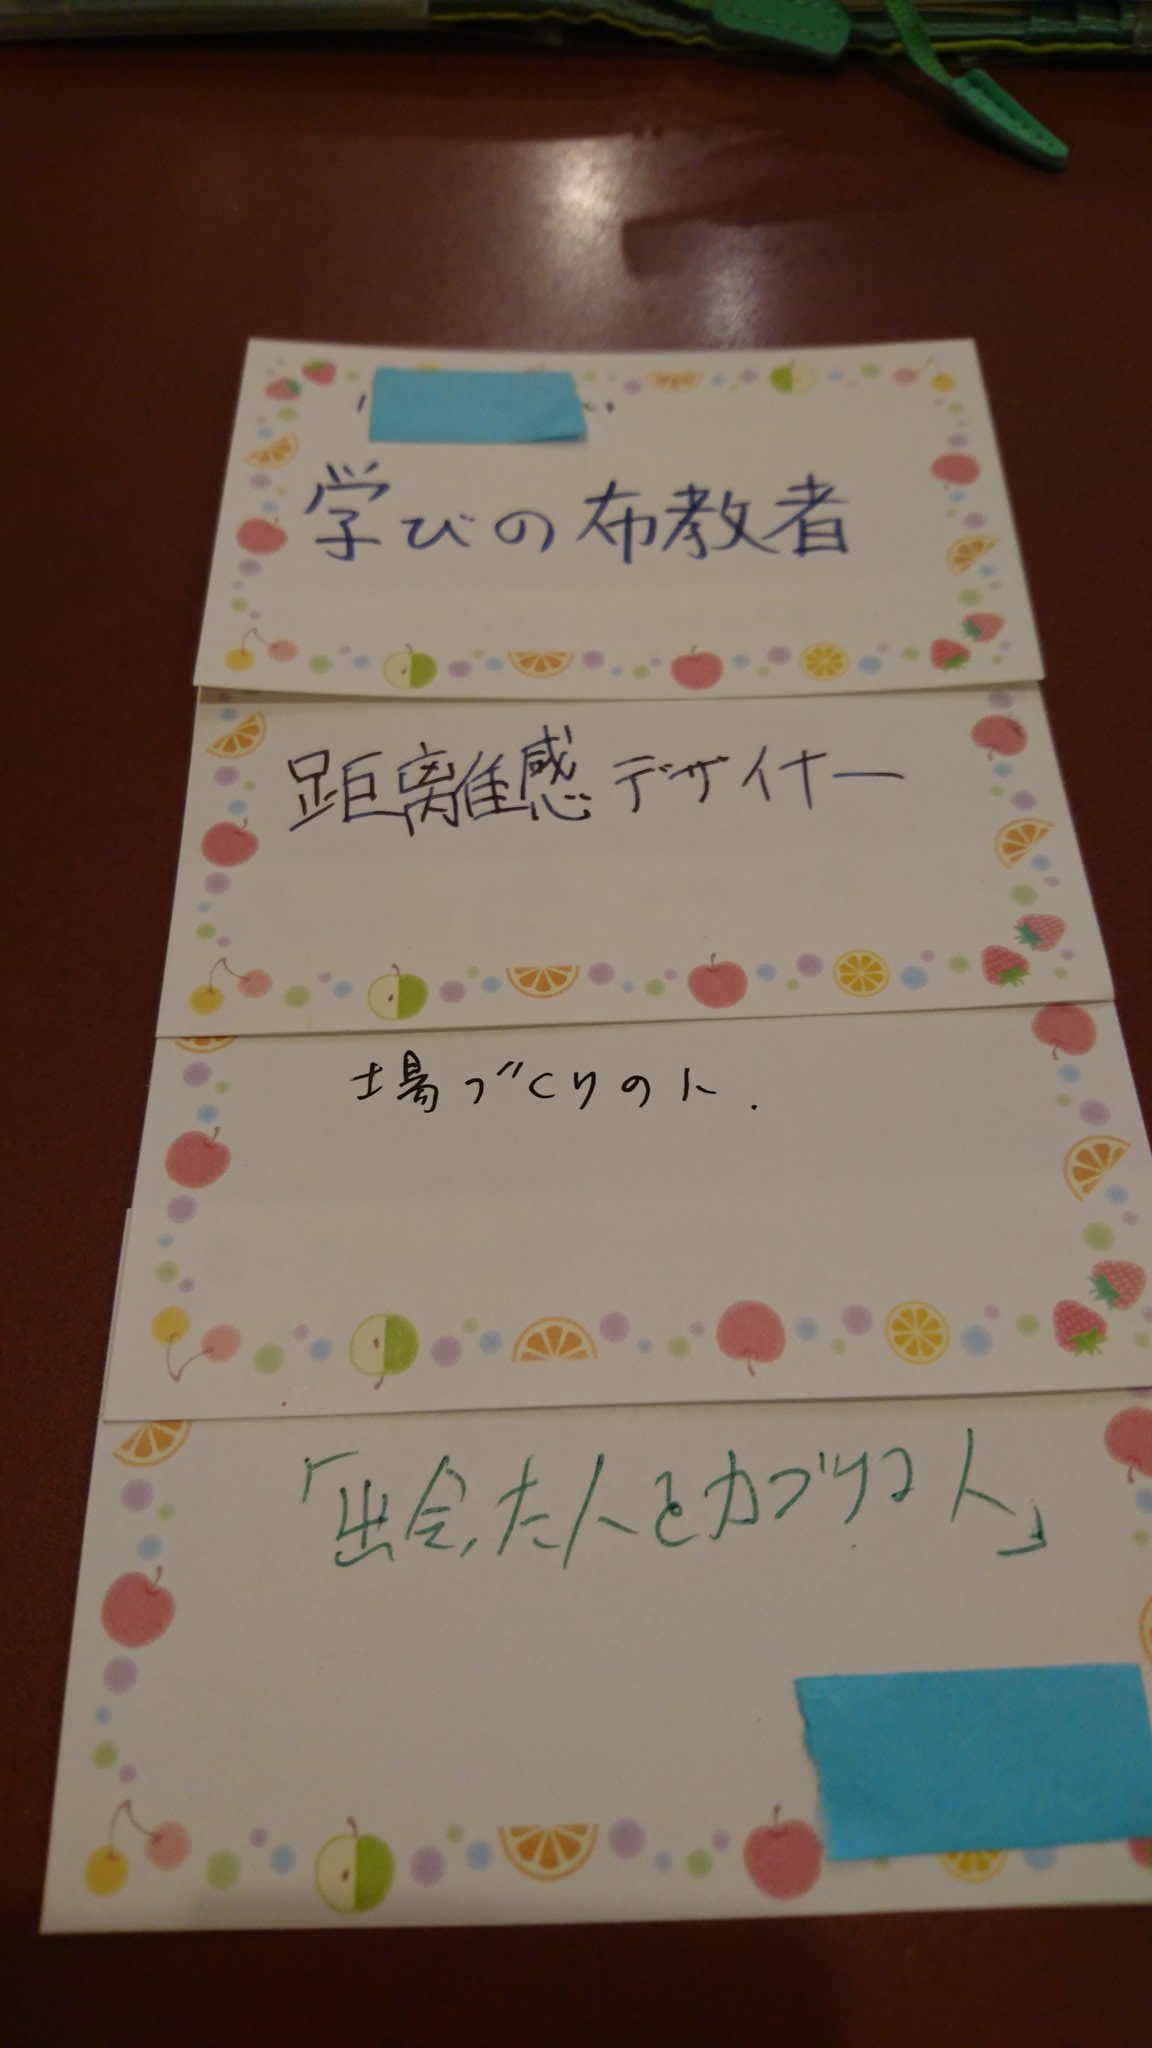 学びの布教者
距離感デザイナー
場づくりの人.
「出会った人とカブりる人」